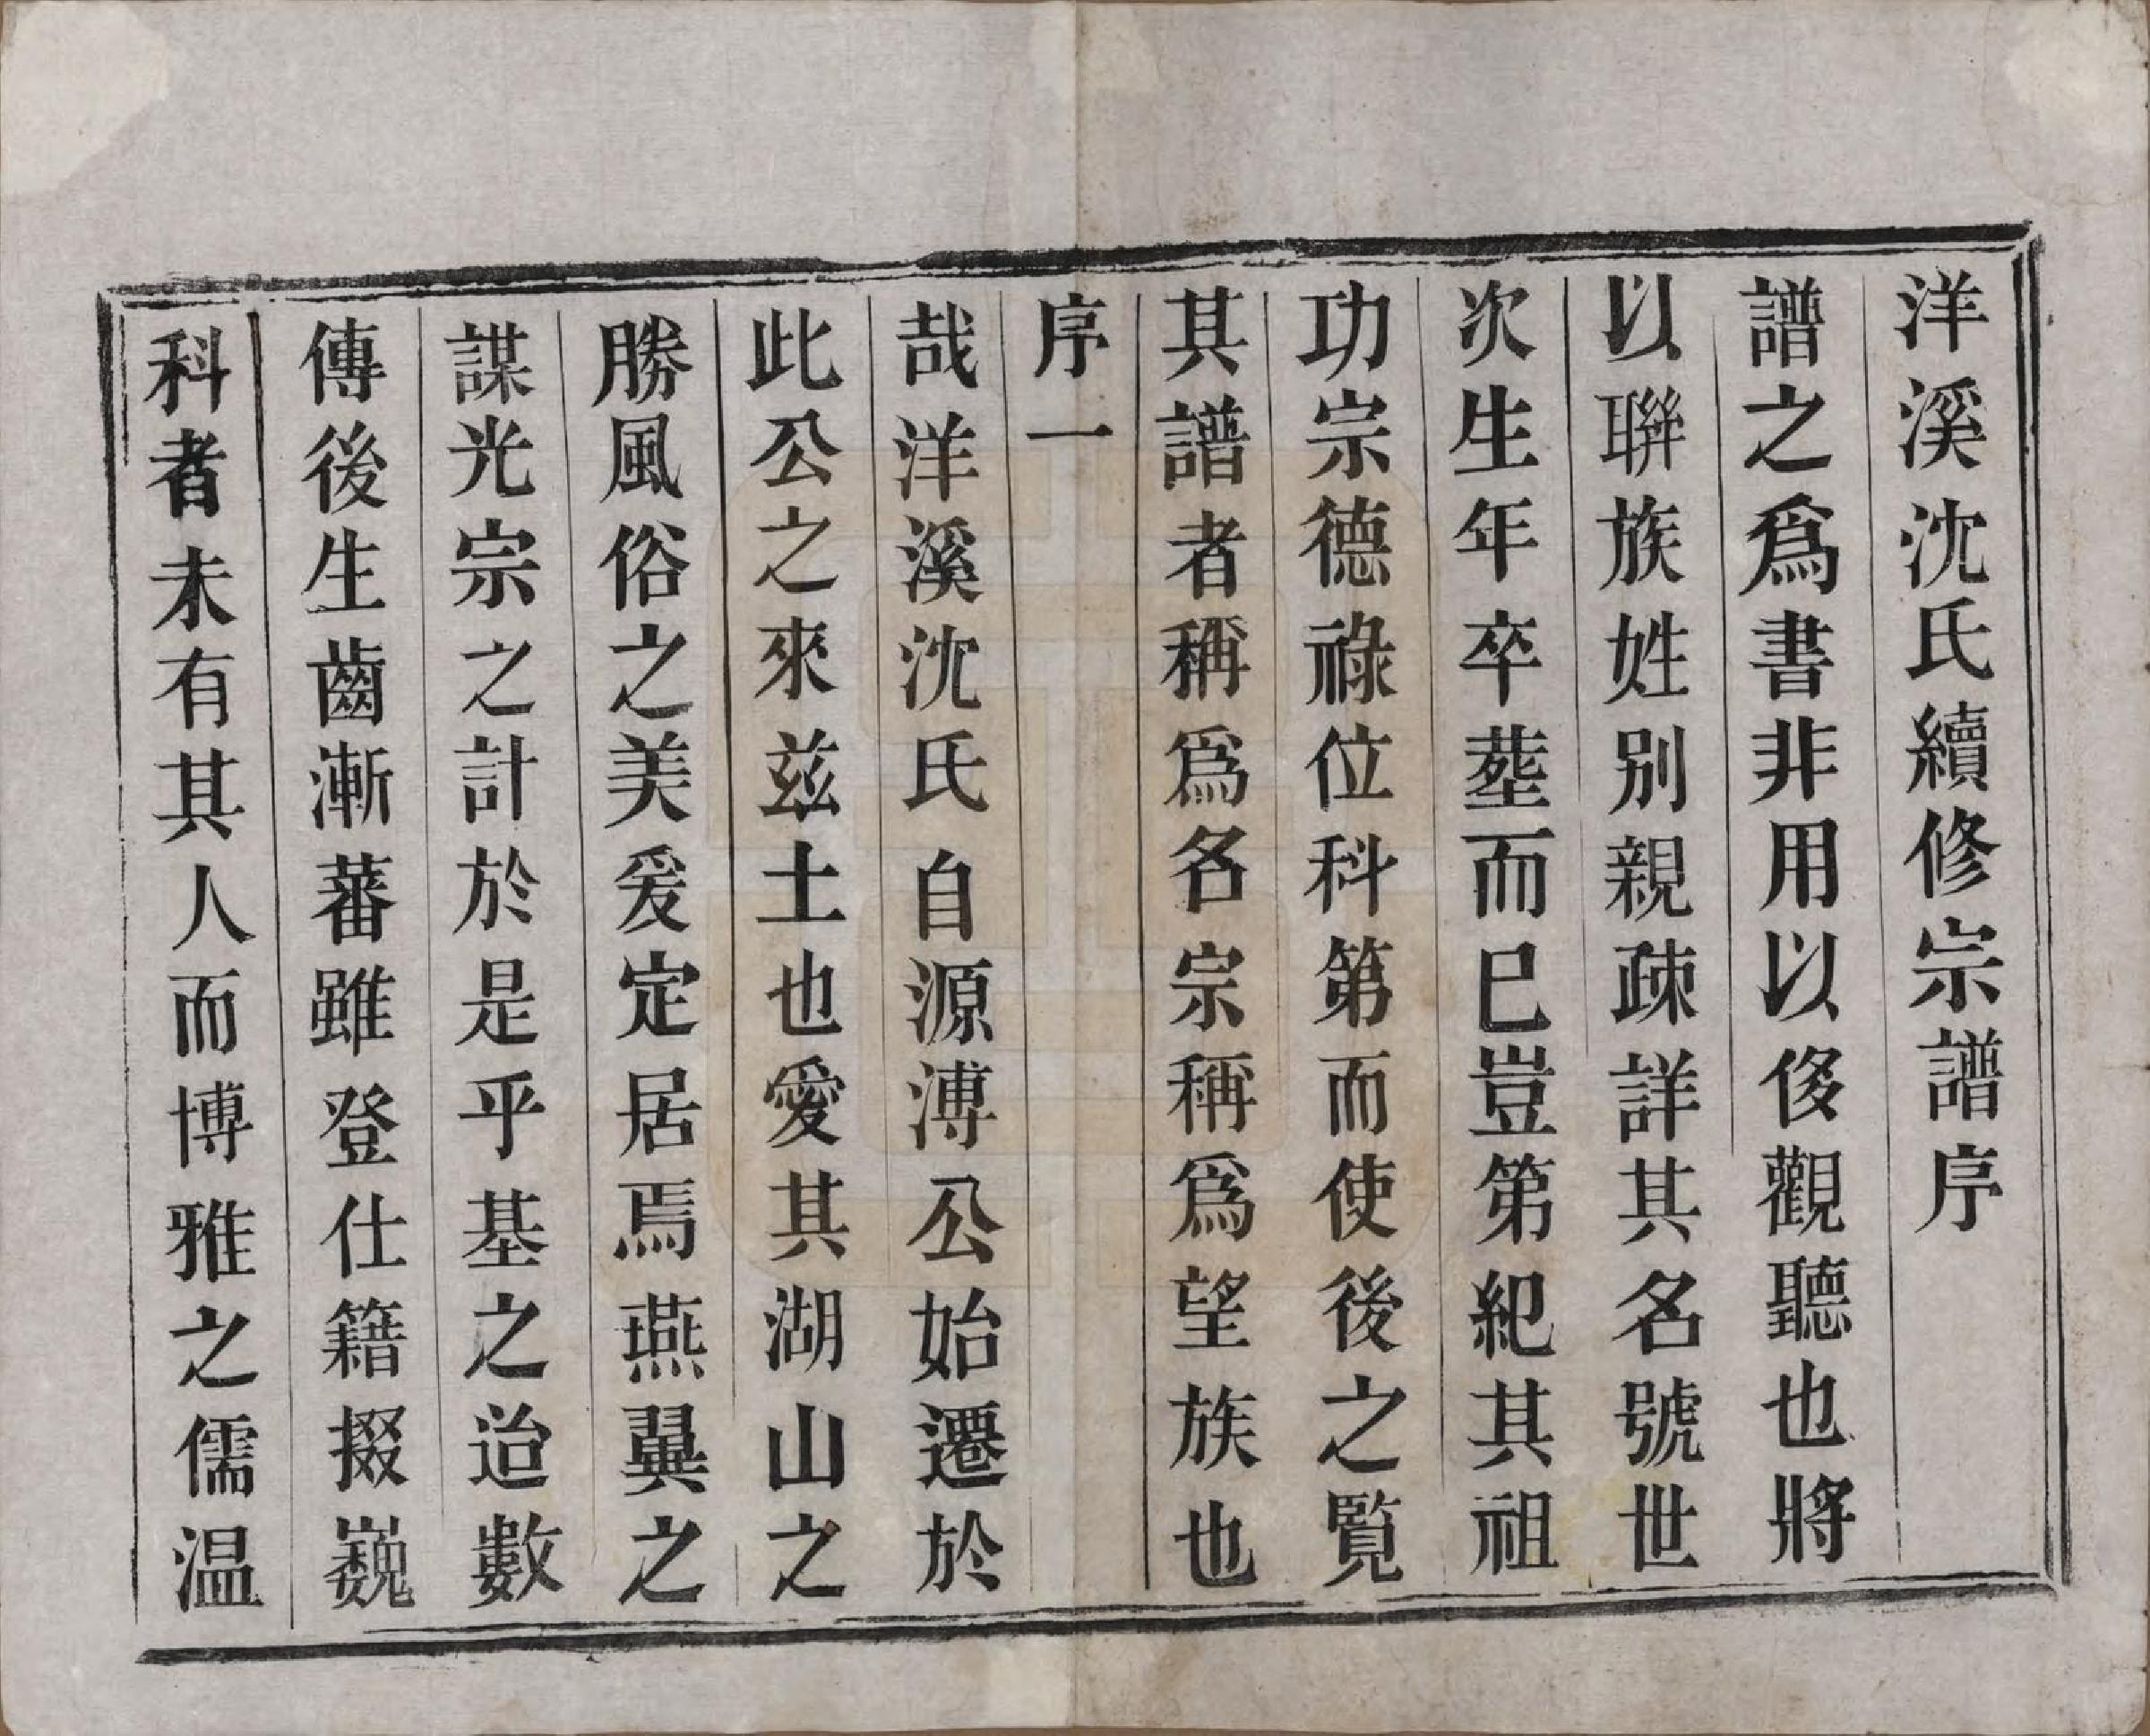 洋溪沈氏續修宗譜序
譜之爲書非用以侈觀聽也將
以聮族姓別親疎詳其名號世
次生年卒塟而已豈第紀其祖
功宗德祿位科第而使後之覧
其譜者稱爲名宗稱爲望族也
序一
哉洋溪沈氏自源溥公始遷於
此公之來兹土也愛其湖山之
勝風俗之美爰定居焉燕翼之
謀光宗之計於是乎基之迨數
傳後生齒漸蕃雖登仕籍掇巍
科者未有其人而博雅之儒温